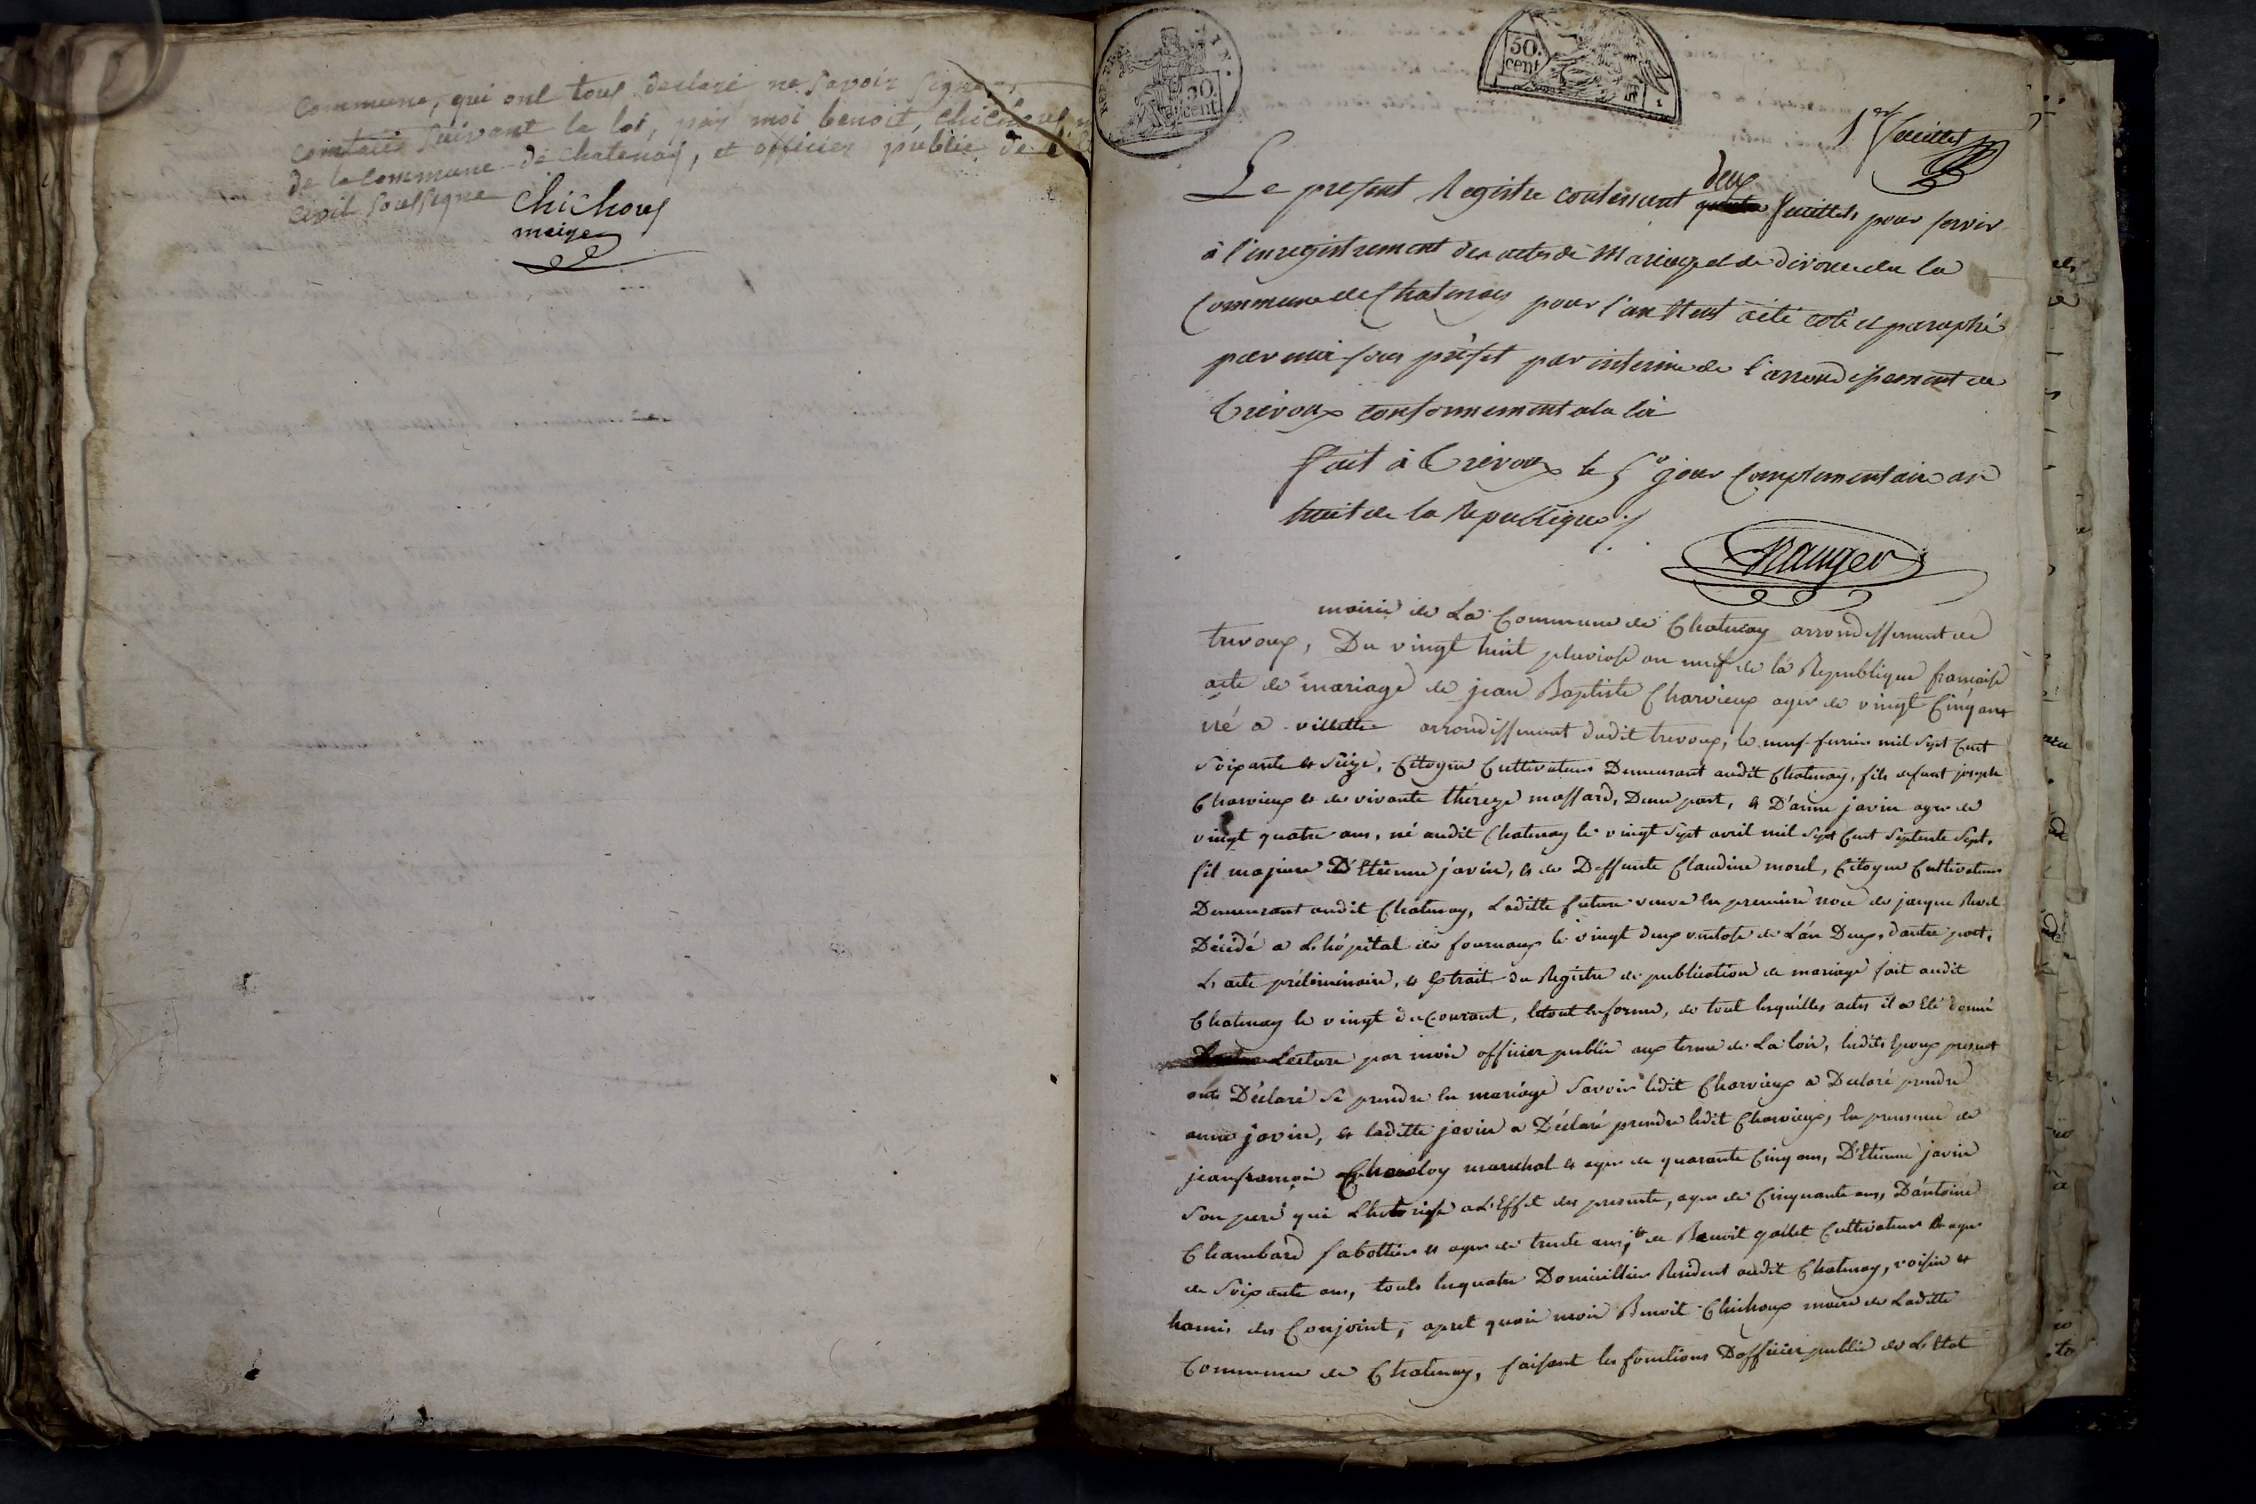 commune, qui ont tous declaré ne savoir signer
constatée suivant la loi, par moi benoit, chichoux
de la commune de chatenay, et officier public de l'é
civil soussigné
chichoux
maire
50
cent
50.
cent
1er feuillet
deux
Le present Registre contenant feuillets pour servir
à l'enregistrement des actes de Mariage et de divorce de la
Commune de Chatenay pour l'an neuf a été coté et paraphé
par moi sous préfet par interim de l'arrondissement de
Trevoux conformement a la loi
fait à Trevoux le 5e jour Complementaire an
huit de la Republique ./.
mairie de La Commune de Chatenay arrondissement de
trevoux, Du vingt huit pluviose an neuf de la Republique francaise
acte de mariage de jean Baptiste Charvieux agee de vingt Cinq ans
né a villette arrondissement dudit trevoux, le neuf fevrier mil sept Cent
Soixante et Seize, Citoyen Cultivateur Demeurant audit Chatenay, fils defunt joseph
Charvieux et de vivante thereze massard, Dune part, et D'anne javin agee de
vingt quatre ans, né audit Chatenay le vingt Sept avril mil Sept Cent Septente Sept,
fil majeure D'Etienne javin, et de Deffunte Claudine morel, Citoyen Cultivateur
Demeurant audit Chatenay, Laditte future veuve en premiere noce de jacque Revel
Décédé a L'hôpital de fournaux le vingt deux ventose de L'án Deux, dautre part,
L'acte préliminaire, et Extrait du Registre de publication de mariage fait audit
Chatenay le vingt du Courant, letout en forme, de tout lesquelles actes il a Eté donné
Lecture par moi officier public aux terme de La loi, lesdits Epoux present
ont Déclaré Se prendre en mariage Savoir ledit Charvieux a Declaré prendre
anne javin, et laditte javin a Déclaré prendre ledit Charvieux, en presence de
jean francoi marechal et agee de quarante Cinq ans, D'Etienne javin
Son peré qui L'hotorise a L'Effet des presente, agee de Cinquante ans, D'antoine
Chambard sabottier et agee de trente ans, et de Benoit gallet Cultivateur et agee
de Soixante ans, touts lesquatre Domicillier Resident audit Chatenay, voisin et
hamis des Conjoint, apret quoi moi Benoit Chichoux maire de Laditte
Commune de Chatenay, faisant les fonctions D'officier public de L'Etat